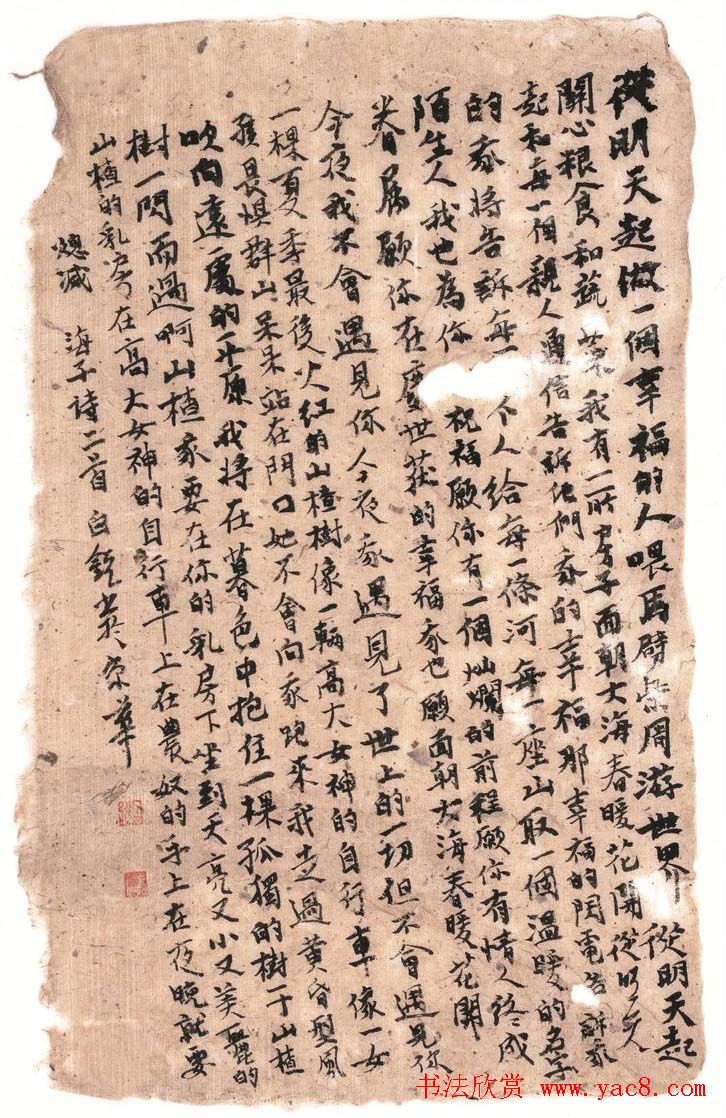 從明天起做一個幸福的人喂馬劈柴周游世界從明天起
關心粮食和蔬菜我有一所房子面朝大海春暖花開從明天
起和每一個親人通信告訴他們我的幸福那幸福的閃電告訴我
的我將告訴每一个人給每一條河每一座山取一個温暖的名字
陌生人我也為你祝福願你有一個灿爛的前程願你有情人終成
眷屬願你在塵世获的幸福我也願面朝大海春暖花開
今夜我不會遇見你今夜我遇見了世上的一切但不會遇見你
一棵夏季最後火红的山楂樹像一輛高大女神的自行車像一女
孩畏惧群山呆呆站在門口她不會向我跑来我走過黄昏型風
吹向遠處的平原我將在暮色中抱住一棵孤獨的樹干山楂
樹一閃而過啊山楂我要在你的乳房下坐到天亮又小又美麗的
山楂的乳房在高大女神的自行車上在農奴的手上在夜晚就要
熄滅 海子诗二首 白 書於京華
书法欣赏 www.yac8.com